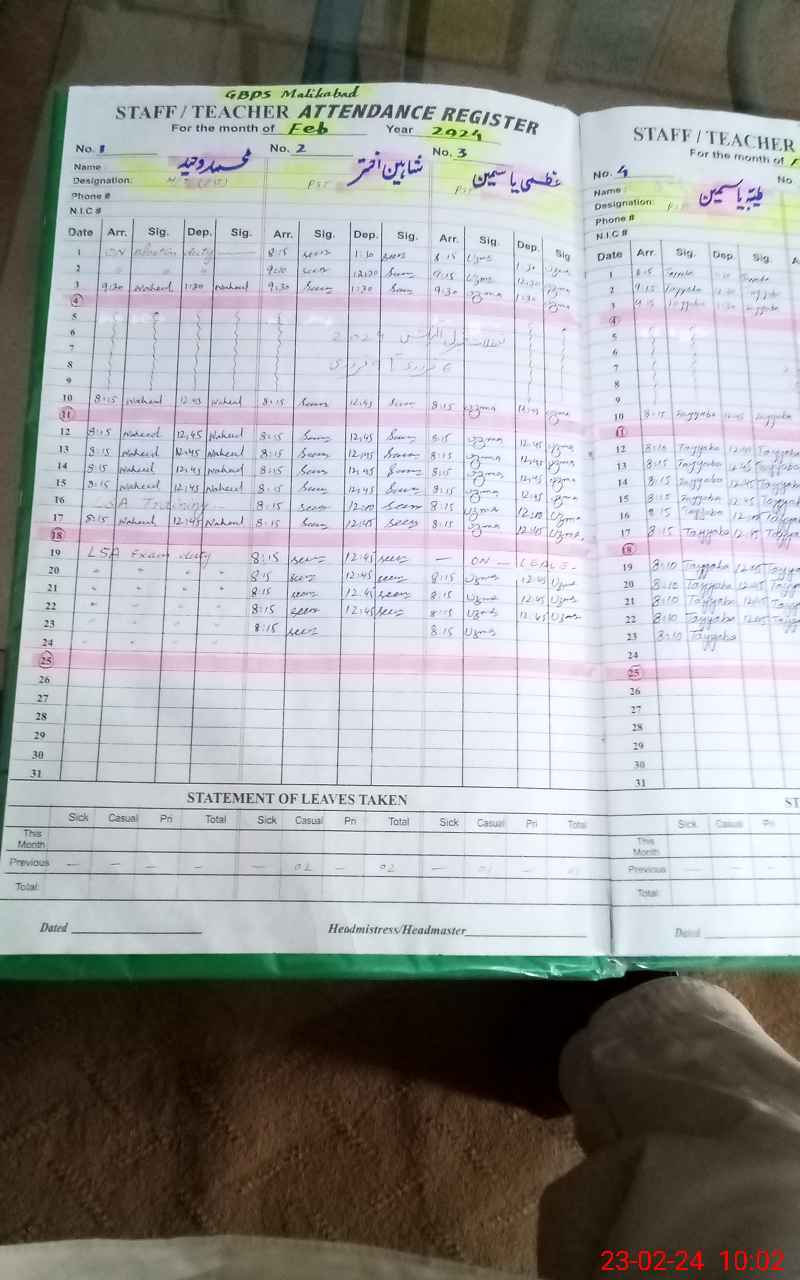 GBPS Malikabad
STAFF / TEACHER ATTENDANCE REGISTER
For the month of Feb Year 2024
No. 1 No. 2 No. 3
Name : محمد وحید شاہین اختر عظمیٰ یاسمین
Designation: PST
Phone #
N.I.C #
Date Arr. Sig. Dep. Sig. Arr. Sig. Dep. Sig. Arr. Sig. Dep. Sig
1 ON Election duty 8:15 seen 1:30 seen 8:15 Uzma 1:30 Uzma
2 " " " 9:10 seen 12:30 Seen 9:15 Uzma 12:30 Uzma
3 9:30 Waheed 1:30 Waheed 9:30 Seen 1:30 Seen 9:30 Uzma 1:30 Uzma
4
5
6 2024
7
8
9
10 8:15 Waheed 12:45 Waheed 8:15 Seen 12:45 Seen 8:15 Uzma 12:45 Uzma
11
12 8:15 Waheed 12:45 Waheed 8:15 Seen 12:45 Seen 8:15 Uzma 12:45 Uzma
13 8:15 Waheed 12:45 Waheed 8:15 Seen 12:45 Seen 8:15 Uzma 12:45 Uzma
14 8:15 Waheed 12:45 Waheed 8:15 Seen 12:45 Seen 8:15 Uzma 12:45 Uzma
15 8:15 Waheed 12:45 Waheed 8:15 Seen 12:45 Seen 8:15 Uzma 12:45 Uzma
16 LSA Training 8:15 seen 12:00 Seen 8:15 Uzma 12:00 Uzma
17 8:15 Waheed 12:45 Waheed 8:15 Seen 12:45 seen 8:15 Uzma 12:45 Uzma
18
19 LSA Exam duty 8:15 seen 12:45 seen — ON — LEAVE -
20 " " " " 8:15 seen 12:45 seen 8:15 Uzma 12:45 Uzma
21 " " " " 8:15 seen 12:45 seen 8:15 Uzma 12:45 Uzma
22 " " " " 8:15 seen 12:45 seen 8:15 Uzma 12:45 Uzma
23 " " " " 8:15 seen 8:15 Uzma
24 " " " "
25
26
27
28
29
30
31
STATEMENT OF LEAVES TAKEN
Sick Casual Pri Total Sick Casual Pri Total Sick Casual Pri Total
This Month
Previous — — — — 02 — 02 — 01 — 01
Total:
Dated Headmistress/Headmaster
STAFF / TEACHER
For the month of
No. 4 No.
Name : طیبہ یاسمین
Designation:
Phone #
N.I.C #
Date Arr. Sig. Dep. Sig. A
1 8:15 Tayyaba Tayyaba
2 9:15 Tayyaba 12:30 Tayyaba
3 9:15 Tayyaba 1:30 Tayyaba
4
5
6
7
8
9
10 8:15 Tayyaba 12:45 Tayyaba
11
12 8:10 Tayyaba 12:45 Tayyaba
13 8:15 Tayyaba 12:45 Tayyaba
14 8:15 Tayyaba 12:45 Tayyaba
15 8:15 Tayyaba 12:45 Tayyaba
16 8:15 Tayyaba 12:00 Tayyaba
17 8:15 Tayyaba 12:45 Tayyaba
18
19 8:10 Tayyaba 12:45 Tayyaba
20 8:10 Tayyaba 12:45 Tayyaba
21 8:10 Tayyaba 12:45 Tayyaba
22 8:10 Tayyaba 12:45 Tayyaba
23 8:10 Tayyaba
24
25
26
27
28
29
30
31
ST
Sick Casual Pri
This Month
Previous — — —
Total
Dated
23-02-24 10:02